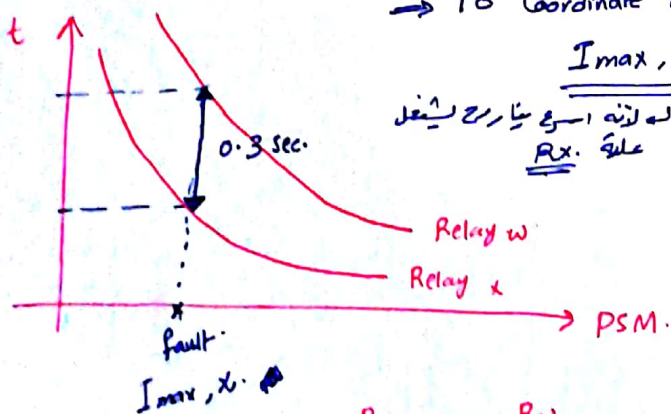 → To Coordinate
t
Imax,
لانه اسرع تيار رح يشتغل
عليه Rx.
0.3 sec.
Relay w
Relay x
PSM.
fault.
Imax, x.